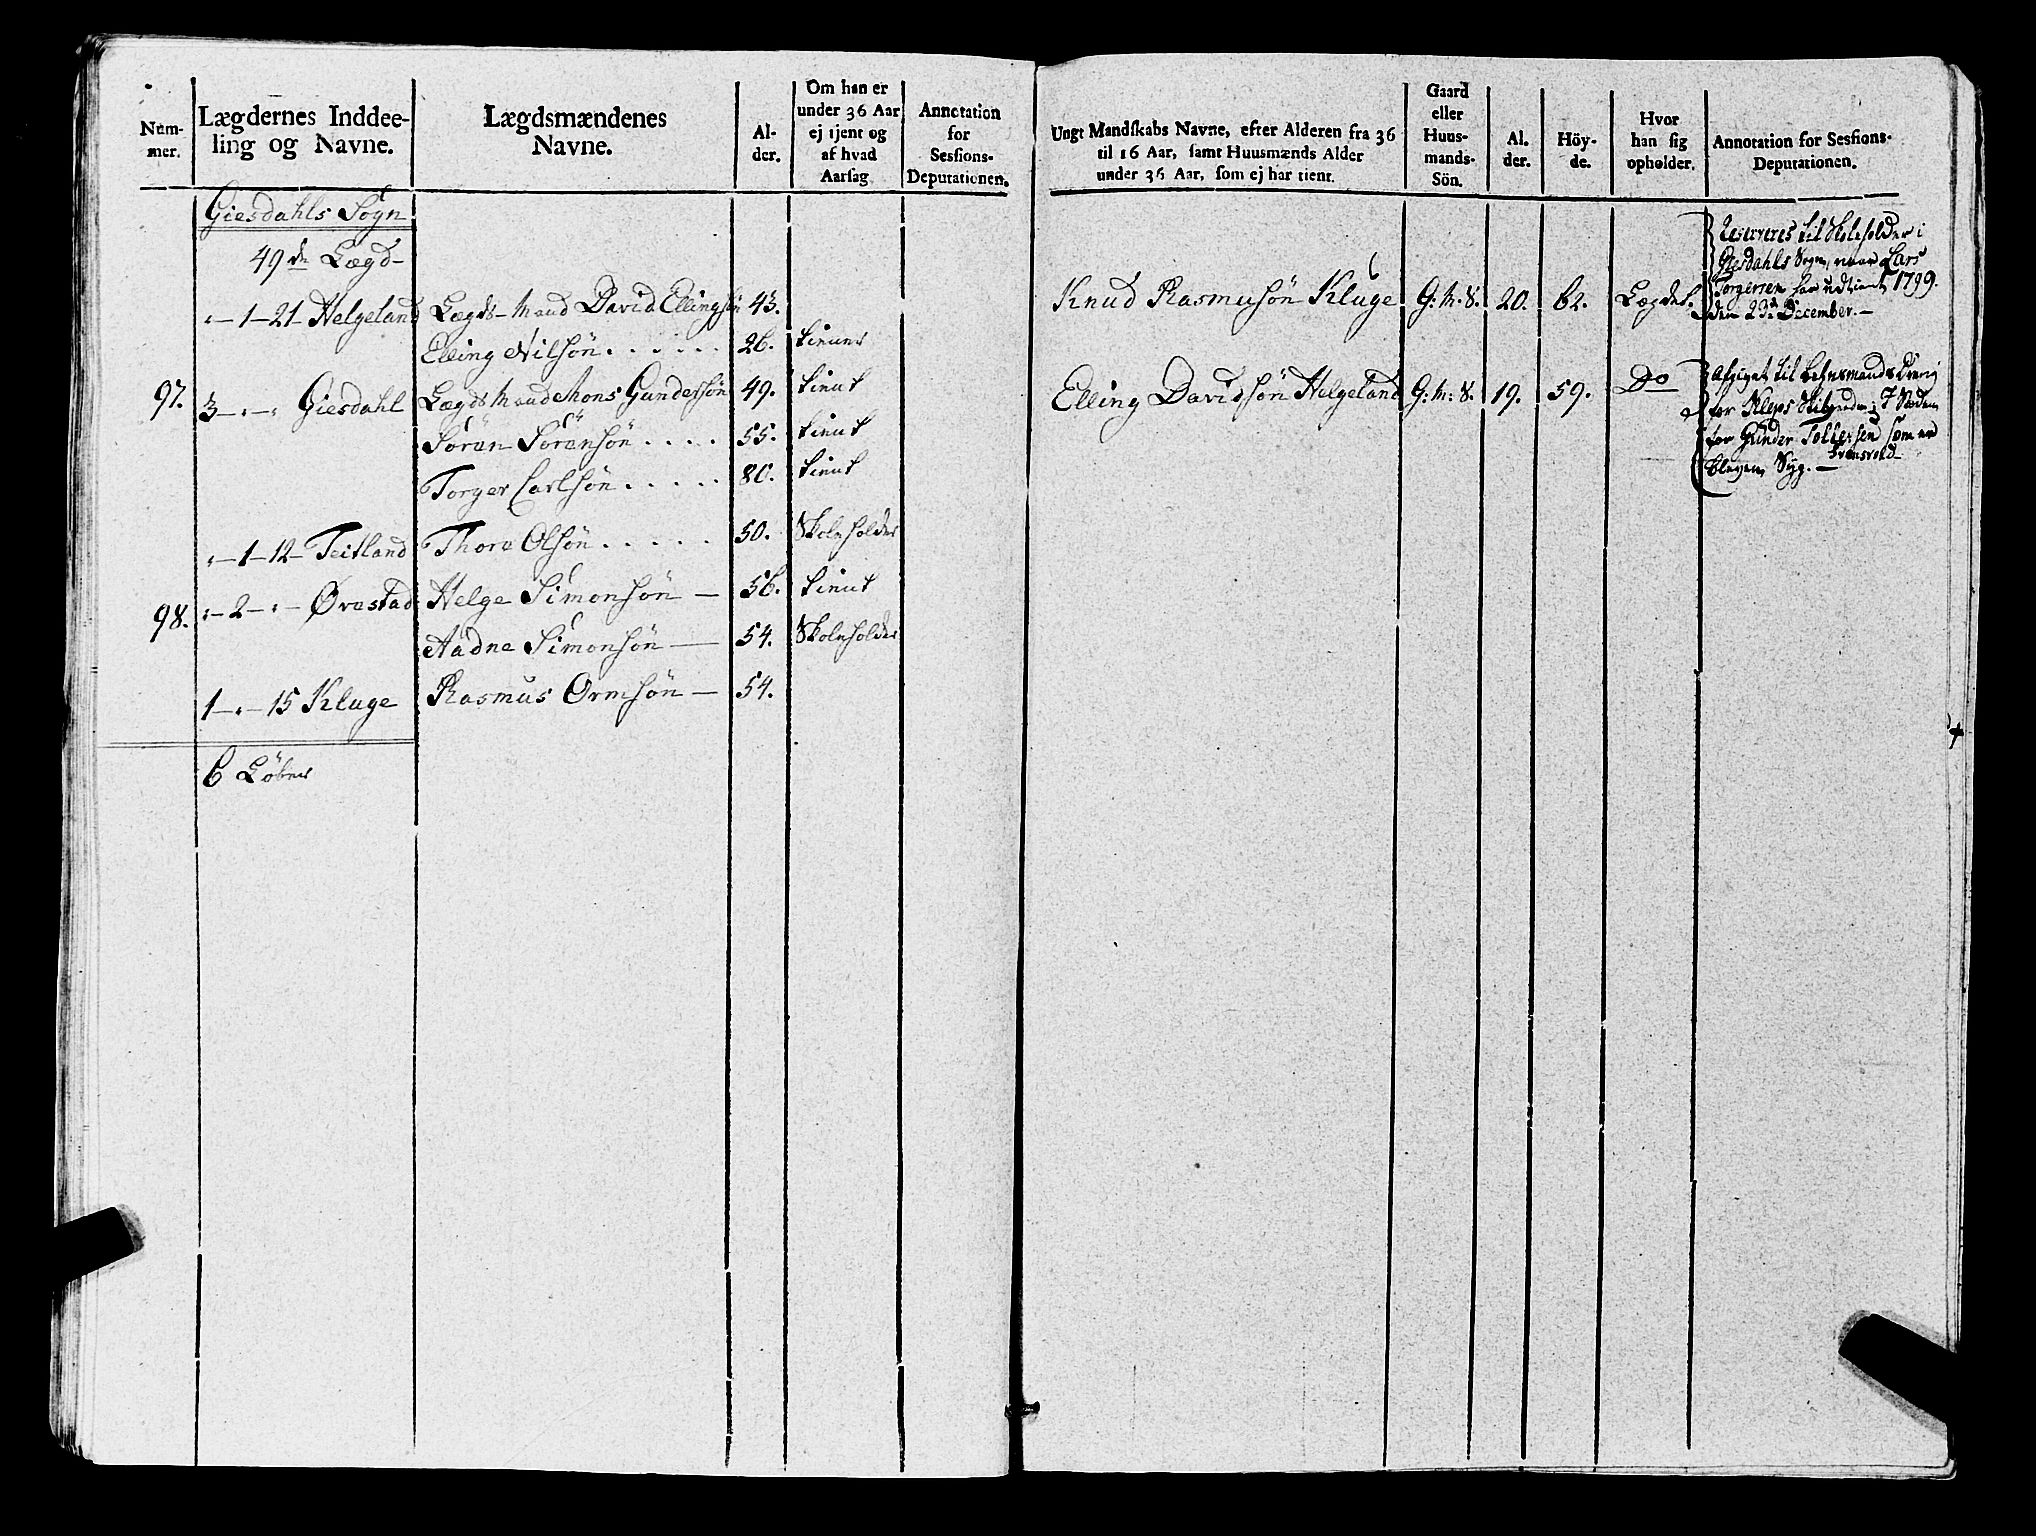 Num-
mer.
Lægdernes Inddee-
ling og Navne.
Lægdsmændenes
Navne.
Al-
der.
Om han er
under 36 Aar
ej tjent og
af hvad
Aarsag
Annotation
for
Sessions-
Deputationen.
Giesdahls Sogn
49de Lægd-
"-1-21- Helgeland Lægds-Mand David Ellingsøn 43.
Elling Nilsøn . . . . . . 26. tiener
97. 3-"-" Giesdahl Lægds Mand Mons Gundersøn 49. tient
Søren Sørensøn . . . . 55. tient
Torger Carlsøn . . . . . 80. tient
"-1-12- Teitland Thore Olsøn . . . . . 50. Skoleholder
98. "-2-"- Ørestad Helge Simonsøn - 56. tient
Aadne Simonsøn - 54. Skoleholder
1-"-15 Kluge Rasmus Ormsøn - 54.
6 Løber
Ungt Mandskabs Navne, efter Alderen fra 36
til 16 Aar, samt Huusmænds Alder
under 36 Aar, som ej har tient.
Gaard
eller
Huus-
mands-
Sön.
Al.
der.
Höy-
de.
Hvor
han sig
opholder.
Annotation for Sessions-
Deputationen.
Knud Rasmusøn Kluge G: M: S. 20. 62. Lægdet.
Reserveres til Skoleholder i
Giesdahls Sogn, naar Lars
Torgersen har udtient 1799.
den 2de December. -
Elling Davidsøn Helgeland G: M: S. 19. 59. Do
Afgivet til Lehnsmands Dreng
for Kleps Skibrede i Steden
for Gunder Tollefsen som er
bleven Syg. -